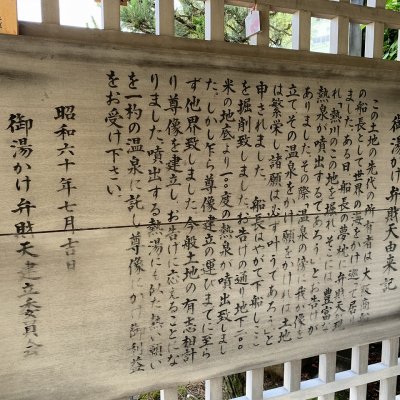 御湯かけ弁財天由来記
この土地の先代の所有者は大阪商船
の船長として世界の海をかけ巡って居り
ました。ある日、船長の夢枕に弁財天が現
れ、熱川のこの地を掘れ、そこには豊富な
熱泉が噴出するであろう」とお告げが
ありました。その際「温泉の傍に我が像を
立て、その温泉をかけ願をかければ、土地
は繁栄し諸願は必ず叶うであろう」と
申されました。 船長はやがて下船し、ここ
を掘削致しました。お告げの通り地下二〇〇
米の地底より一〇〇度の熱泉が噴出致しまし
た。しかし乍ら尊像建立の運びまでに至ら
ず他界致しました。今般土地の有志相計
り尊像を建立し、お告げに応えることにな
りました。噴出する熱湯にも似た熱い願い
を一杓の温泉に託し尊像にかけ御利益
をお受け下さい。
昭和六十年七月吉日
御湯かけ弁財天建立委員会